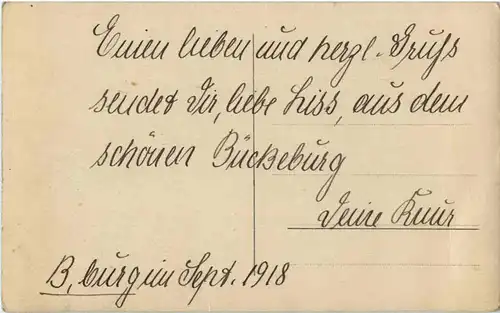 Einen lieben und herzl. Gruß
sendet Dir, liebe Liss, aus dem
schönen Bückeburg
Deine
B,burg im Sept. 1918